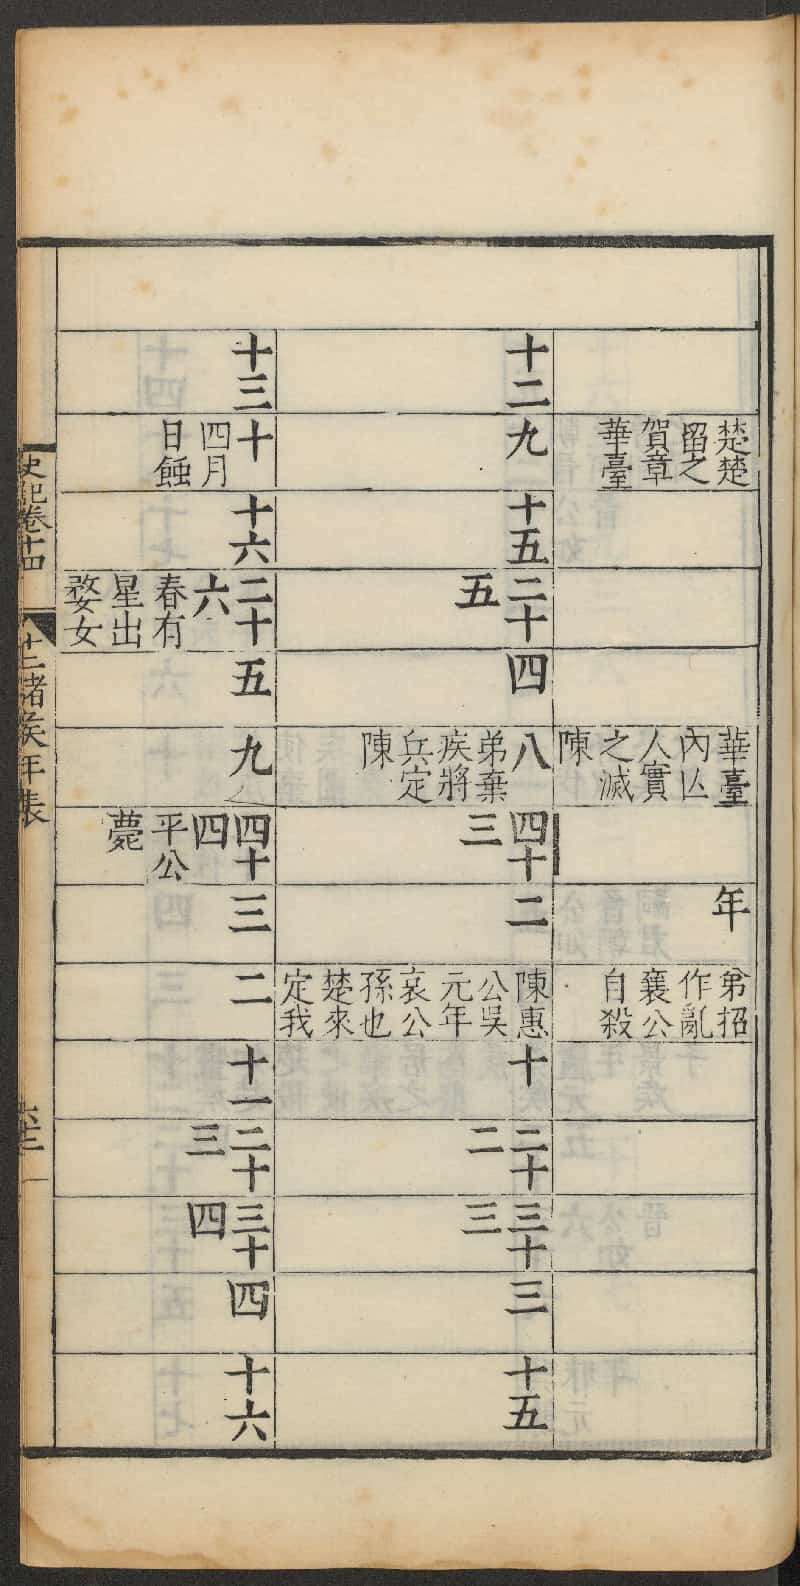 楚楚
留之
賀章
華臺
華臺
內亾
人實
之滅
陳
年
弟招
作亂
襄公
自殺
十二
九
十五
二十
五
四
八
弟棄
疾將
兵定
陳
四十
三
二
陳惠
公吳
元年
哀公
孫也
楚來
定我
十
二十
二
三十
三
三
十五
十三
十
四月
日蝕
十六
二十
六
春有
星出
婺女
五
九
四十
四
平公
薨
三
二
十一
二十
三
三十
四
四
十六
史記卷十四
十二諸侯年表